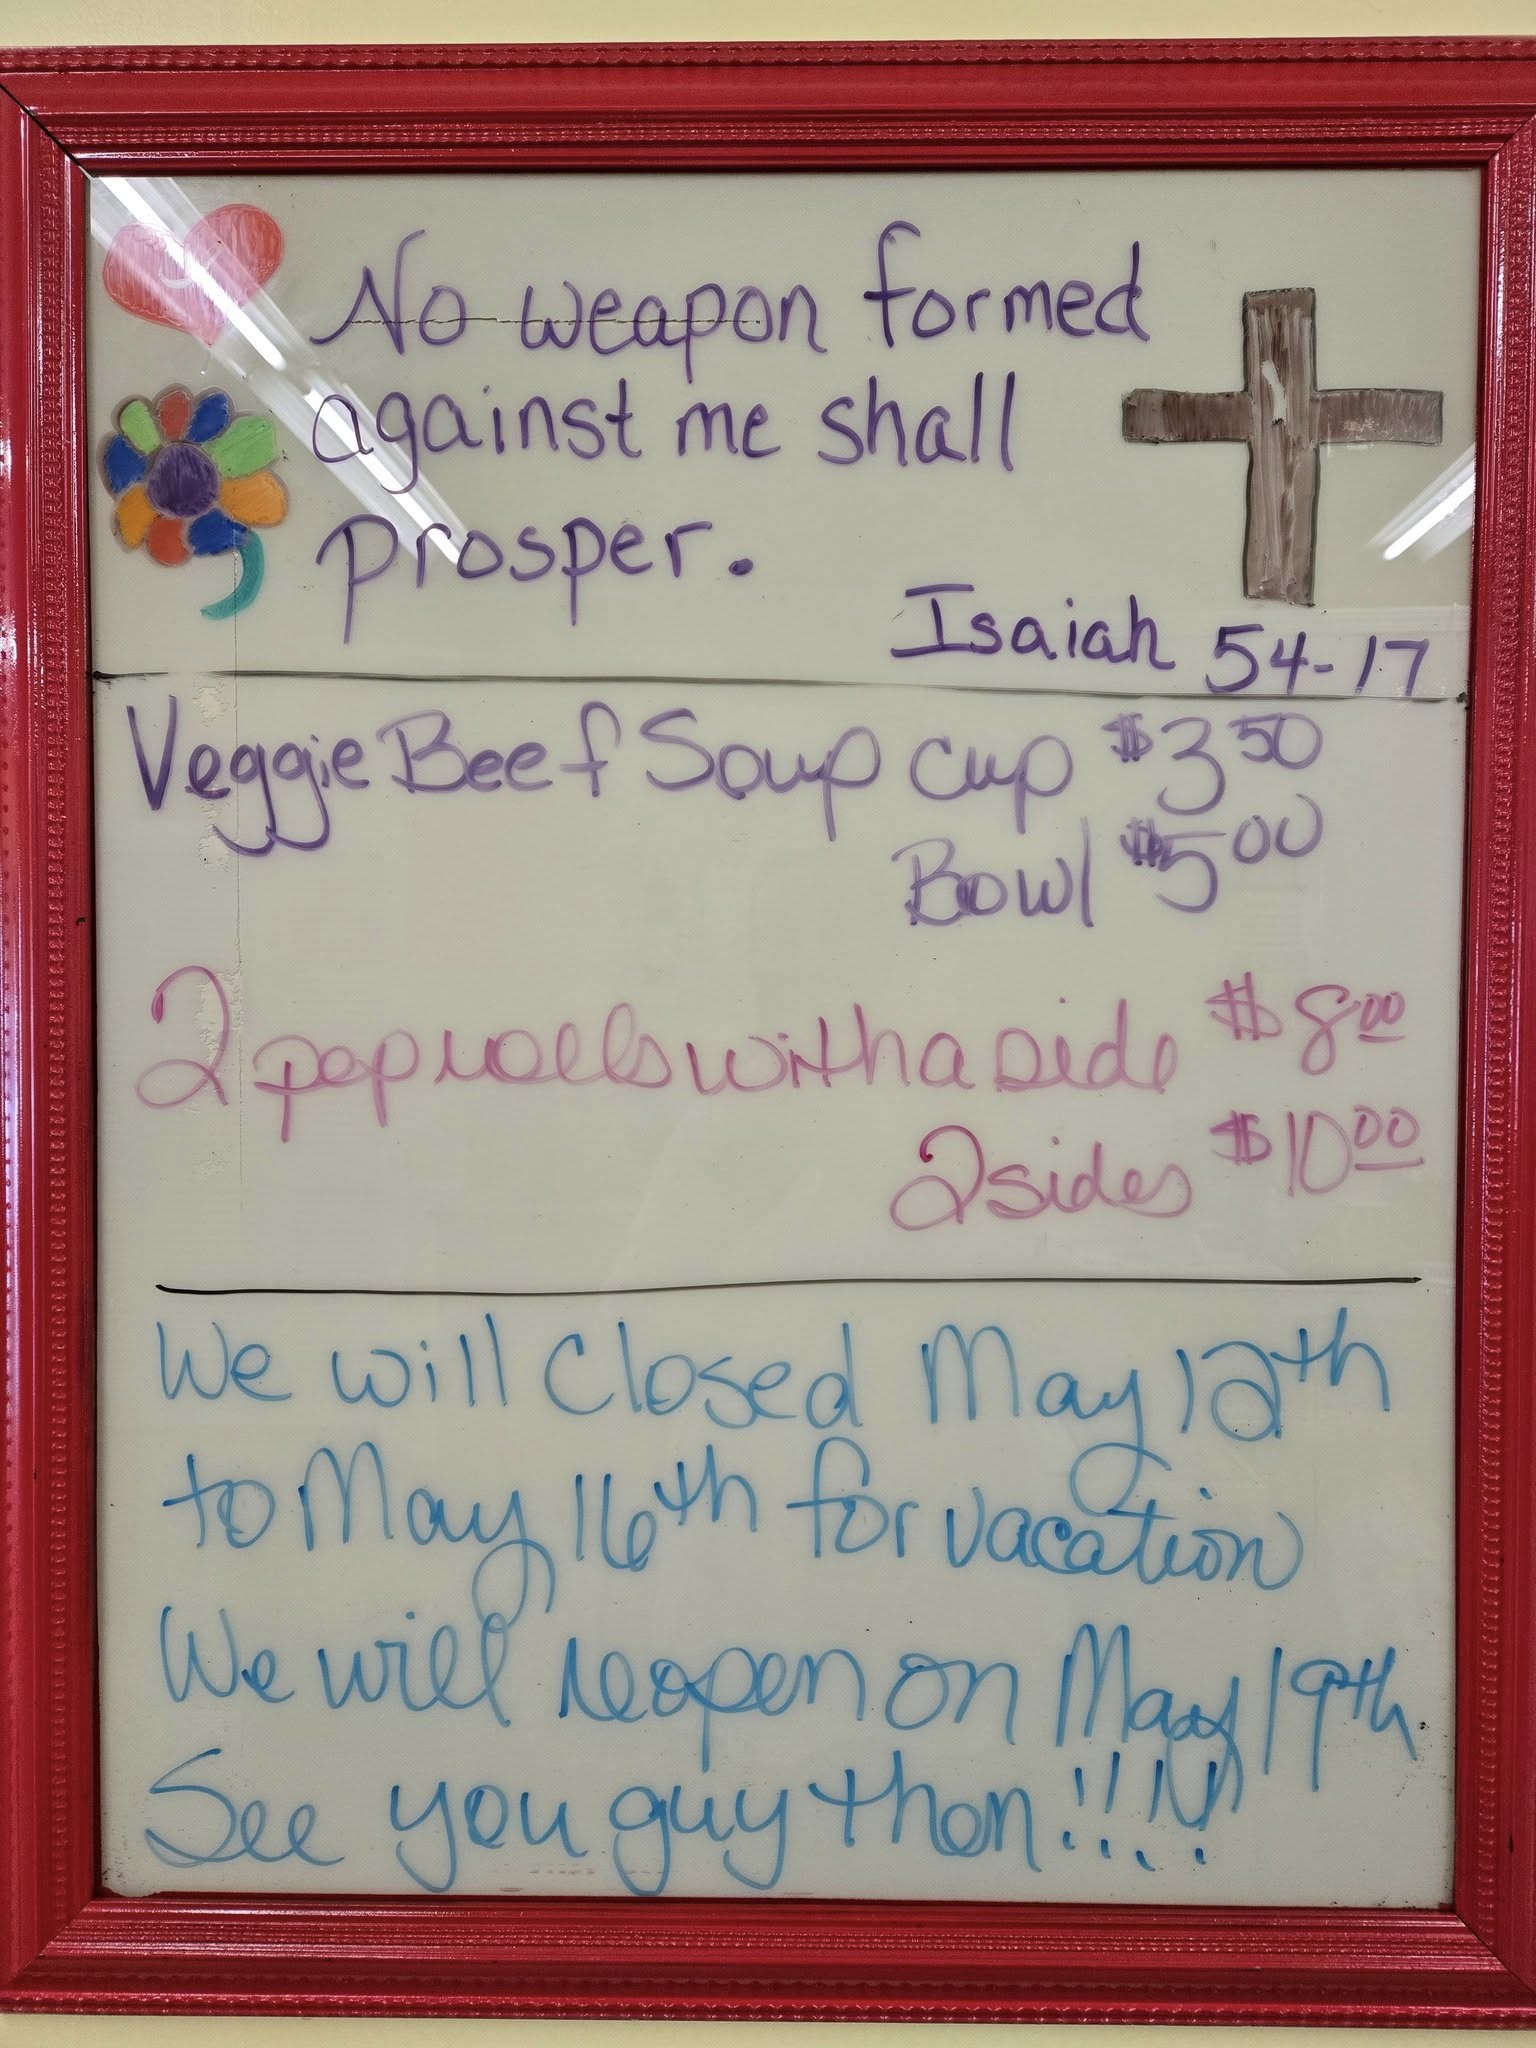 No weapon formed
against me shall
prosper.
Isaiah 54-17
Veggie Beef Soup cup $3.50
Bowl $5.00
2 pep rolls with a side $8.00
2 sides $10.00
We will closed May 12th
to May 16th for vacation
We will reopen on May 19th.
See you guy then!!!!!